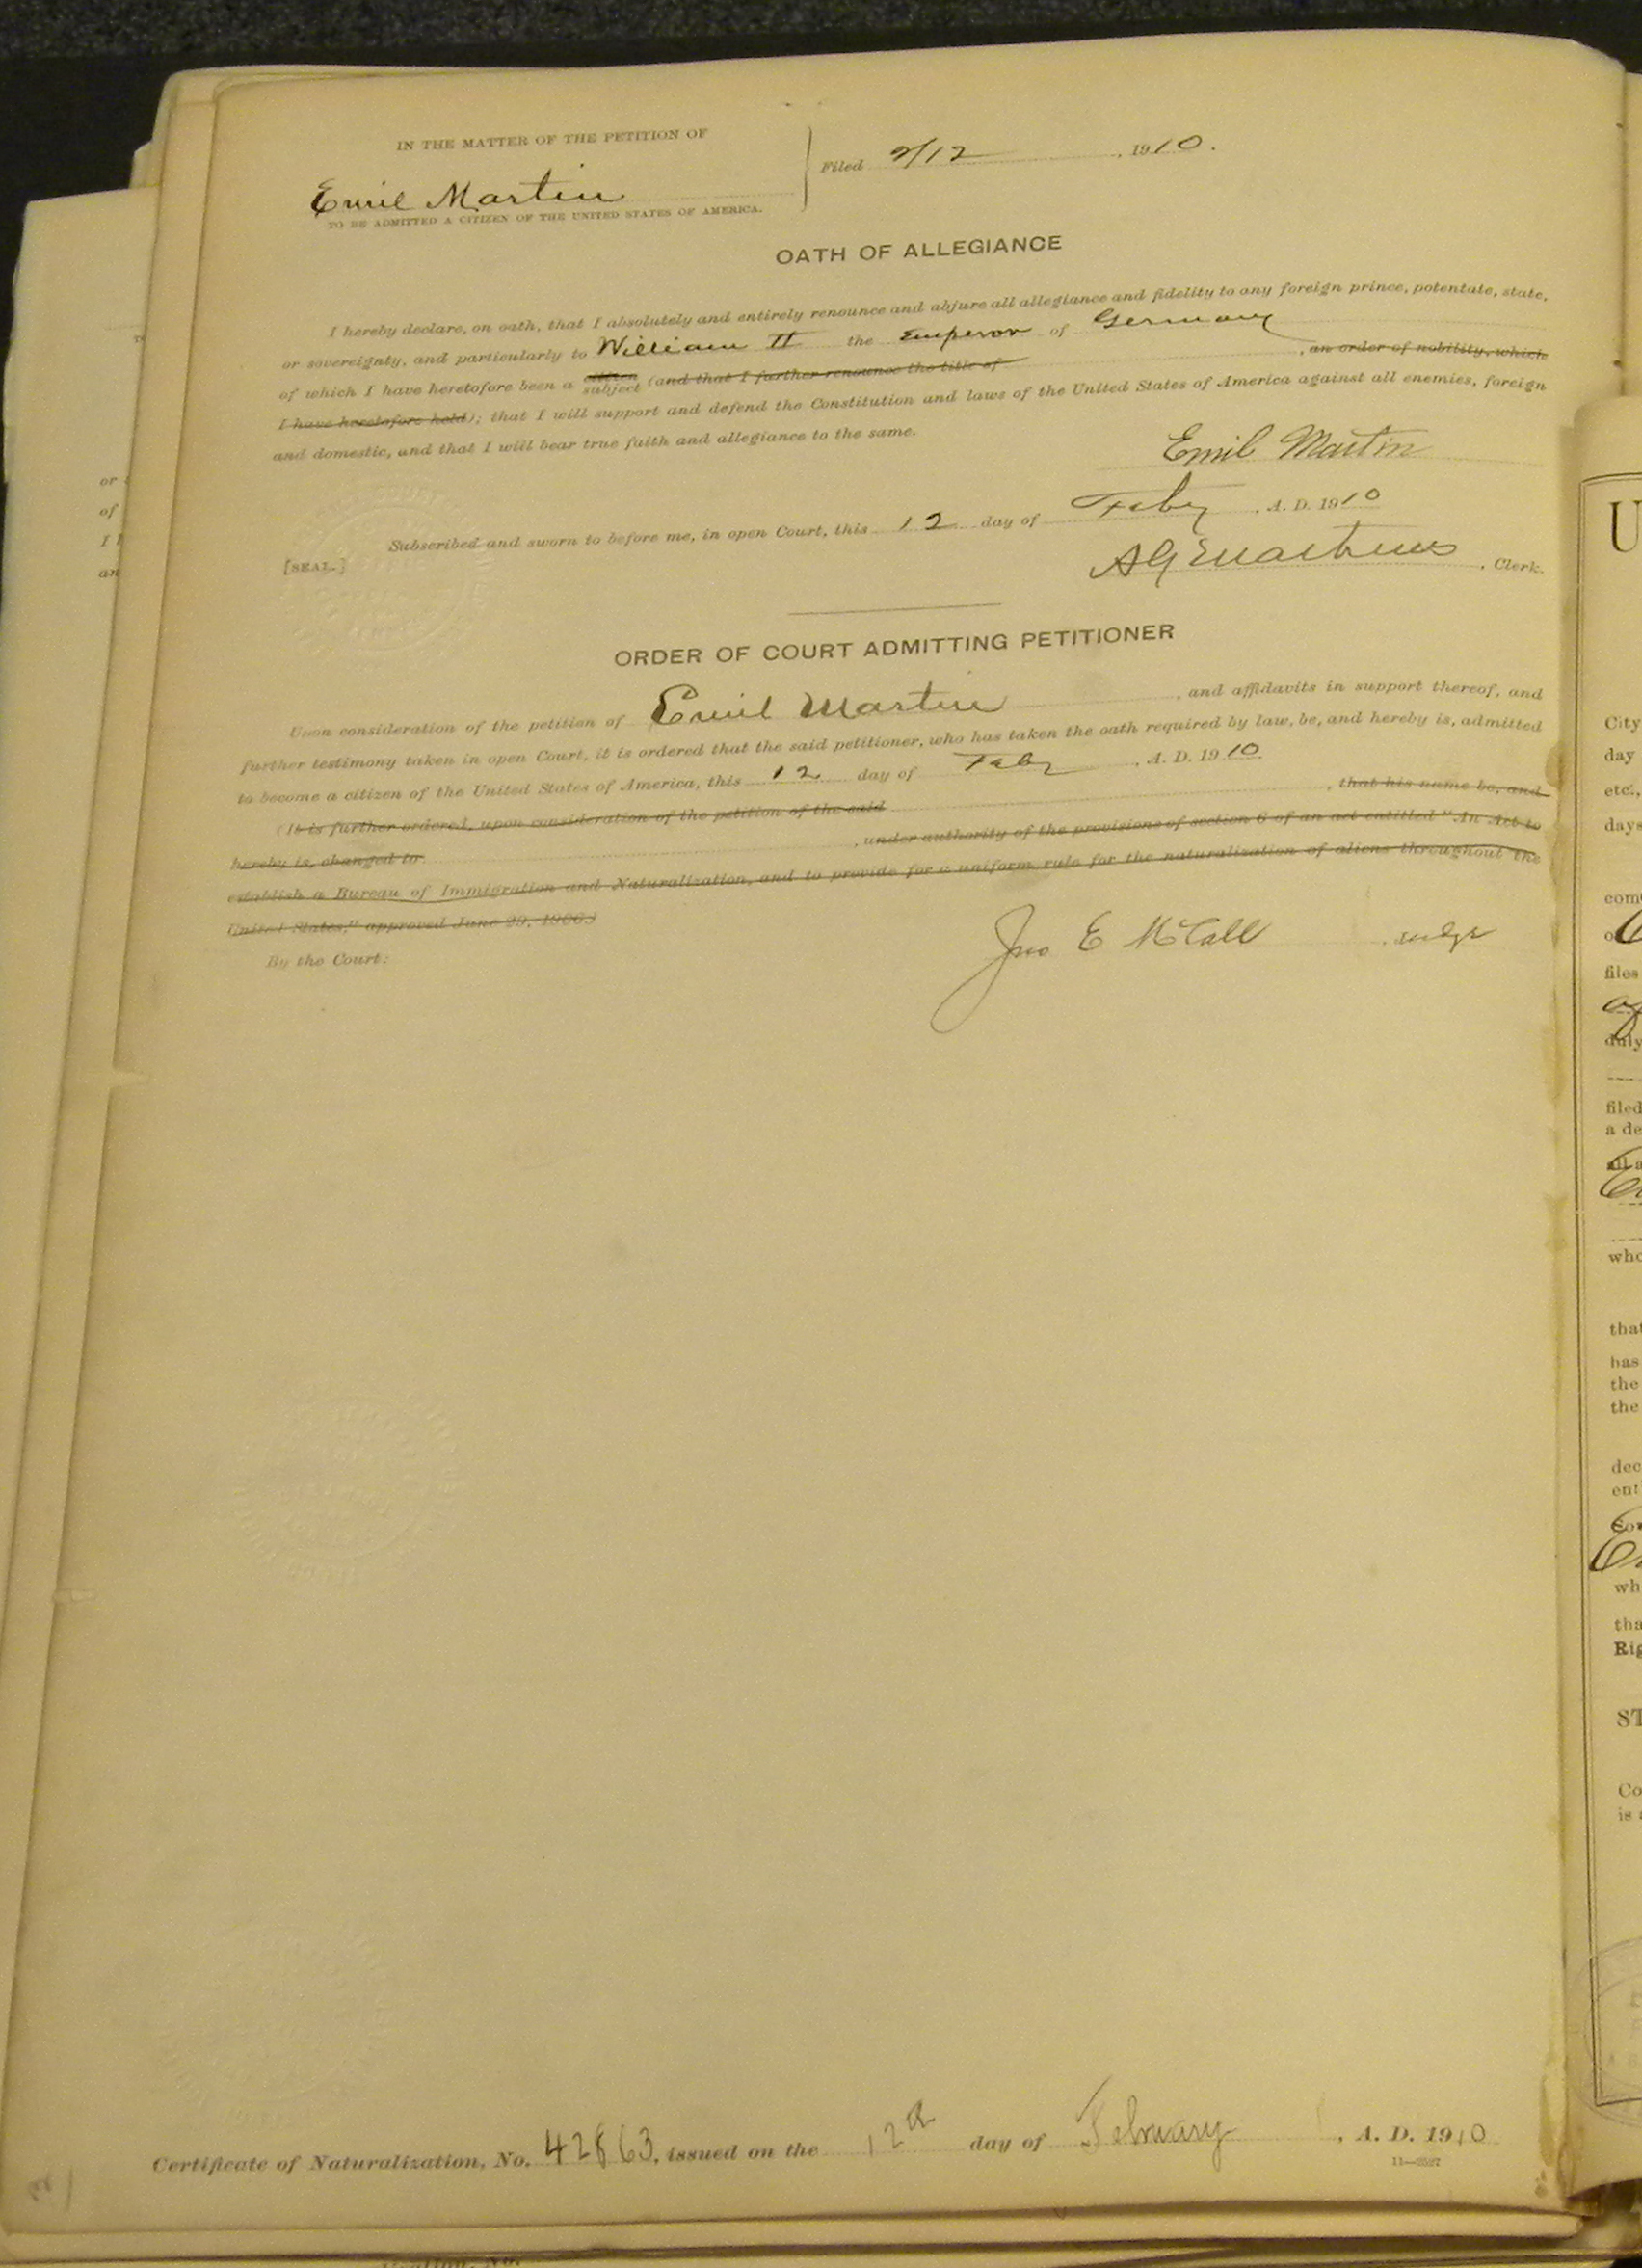 IN THE MATTER OF THE PETITION OF
Emil Martin
TO BE ADMITTED A CITIZEN OF THE UNITED STATES OF AMERICA.
Filed 2/12, 1910.
OATH OF ALLEGIANCE
I hereby declare, on oath, that I absolutely and entirely renounce and abjure all allegiance and fidelity to any foreign prince, potentate, state,
or sovereignty, and particularly to William II the Emperor of Germany
of which I have heretofore been a citizen subject (and that I further renounce the title of , an order of nobility, which
I have heretofore held); that I will support and defend the Constitution and laws of the United States of America against all enemies, foreign
and domestic, and that I will bear true faith and allegiance to the same.
Emil Martin
Subscribed and sworn to before me, in open Court, this 12 day of Feby, A. D. 1910
[SEAL.]
, Clerk.
ORDER OF COURT ADMITTING PETITIONER
Upon consideration of the petition of Emil Martin, and affidavits in support thereof, and
further testimony taken in open Court, it is ordered that the said petitioner, who has taken the oath required by law, be, and hereby is, admitted
to become a citizen of the United States of America, this 12 day of Feby, A. D. 1910
(It is further ordered, upon consideration of the petition of the said , that his name be, and
hereby is, changed to , under authority of the provisions of section 6 of an act entitled "An Act to
establish a Bureau of Immigration and Naturalization, and to provide for a uniform rule for the naturalization of aliens throughout the
United States," approved June 29, 1906.)
By the Court:
Jno E McCall, Judge
Certificate of Naturalization, No. 42863, issued on the 12th day of February, A. D. 1910
11—2527
or
of
I h
an
U
City
day
etc.,
days
com
files
duly
filed
a de
all a
who
that
has
the
the
dec
ent
wh
tha
Rig
ST
Co
is